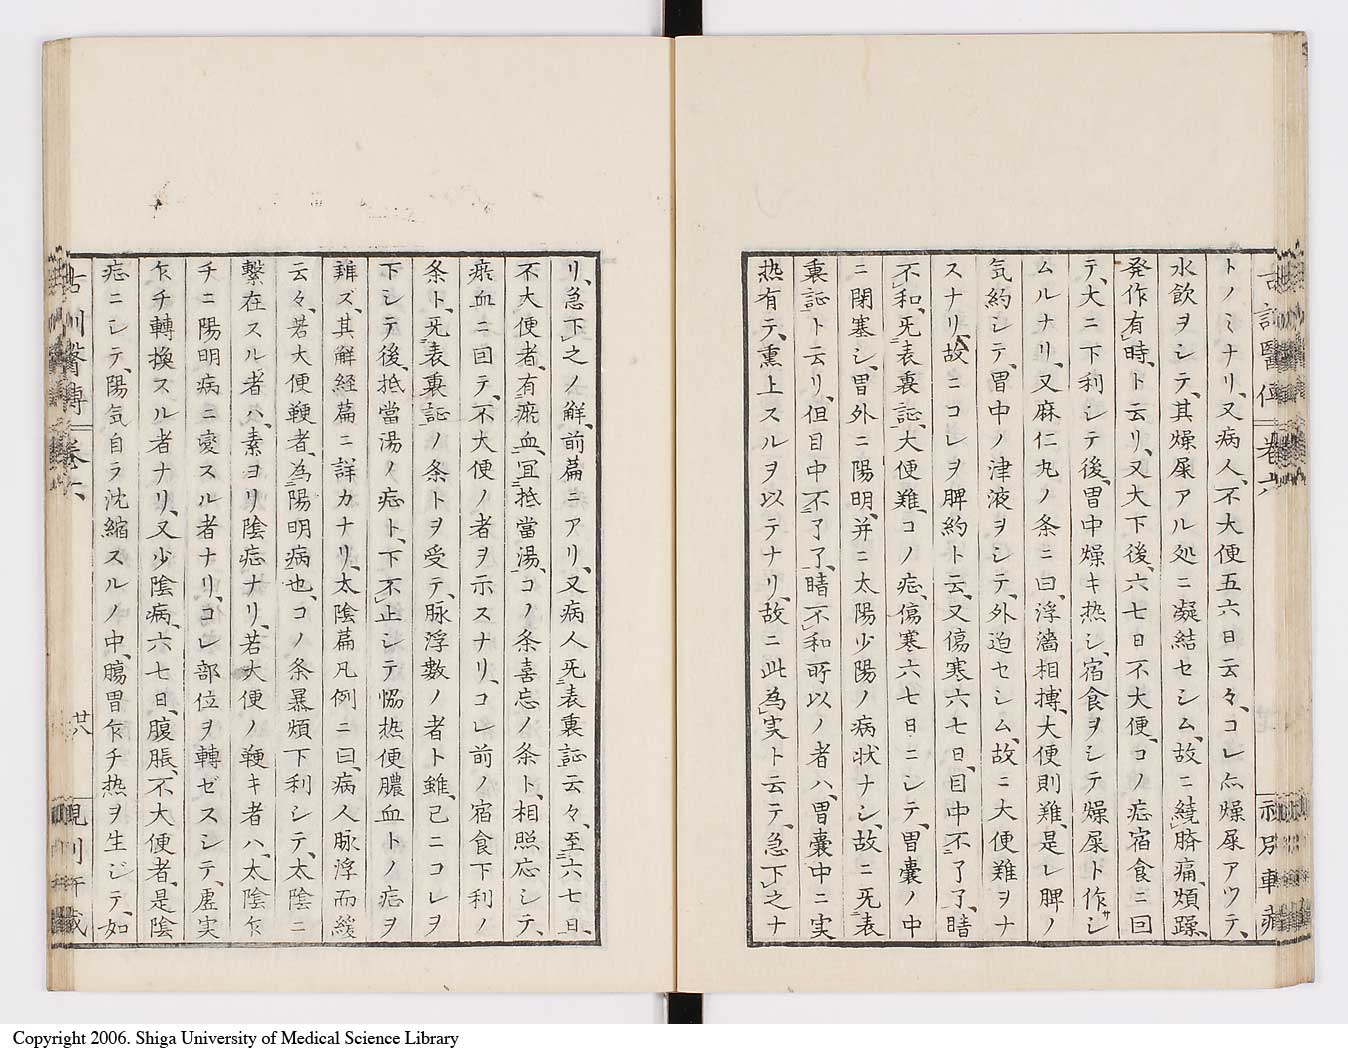 トノミナリ、又病人、不大便五六日云々、コレ亦燥屎アツテ、
水飲ヲシテ、其燥屎アル処ニ凝結セシム、故ニ繞臍痛、煩躁、
発作有時、ト云リ、又大下後、六七日不大便、コノ症宿食ニ因
テ、大ニ下利シテ後、胃中燥キ热シ、宿食ヲシテ燥屎ト作サシ
ムルナリ、又麻仁丸ノ条ニ曰、浮濇相搏、大便則難、是レ脾ノ
気約シテ、胃中ノ津液ヲシテ、外迫セシム、故ニ大便難ヲナ
スナリ、故ニコレヲ脾約ト云、又傷寒六七日、目中不了了、睛
不和、旡表裏証、大便難、コノ症、傷寒六七日ニシテ、胃嚢ノ中
ニ閉塞シ、胃外ニ陽明、并ニ太陽少陽ノ病状ナシ、故ニ旡表
裏証ト云リ、但目中不了了、睛不和所以ノ者ハ、胃嚢中ニ実
热有テ、熏上スルヲ以テナリ、故ニ此為実ト云テ、急下之ナ
リ、急下之ノ解、前篇ニアリ、又病人旡表裏証云々、至六七日、
不大便者、有瘀血、宜抵當湯、コノ条喜忘ノ条ト、相照応シテ、
瘀血ニ因テ、不大便ノ者ヲ示スナリ、コレ前ノ宿食下利ノ
条ト、旡表裏証ノ条トヲ受テ、脉浮數ノ者ト雖、已ニコレヲ
下シテ後、抵當湯ノ症ト、下不止シテ恊热便膿血トノ症ヲ
辨ズ、其解経篇ニ詳カナリ、太陰篇凡例ニ曰、病人脉浮而緩
云々、若大便鞕者、為陽明病也、コノ条暴煩下利シテ、太陰ニ
繋在スル者ハ、素ヨリ陰症ナリ、若大便ノ鞕キ者ハ、太陰乍
チニ陽明病ニ変スル者ナリ、コレ部位ヲ轉ゼスシテ、虚実
乍チ轉換スル者ナリ、又少陰病、六七日、腹脹、不大便者、是陰
症ニシテ、陽気自ラ沈縮スルノ中、腸胃乍チ热ヲ生ジテ、如